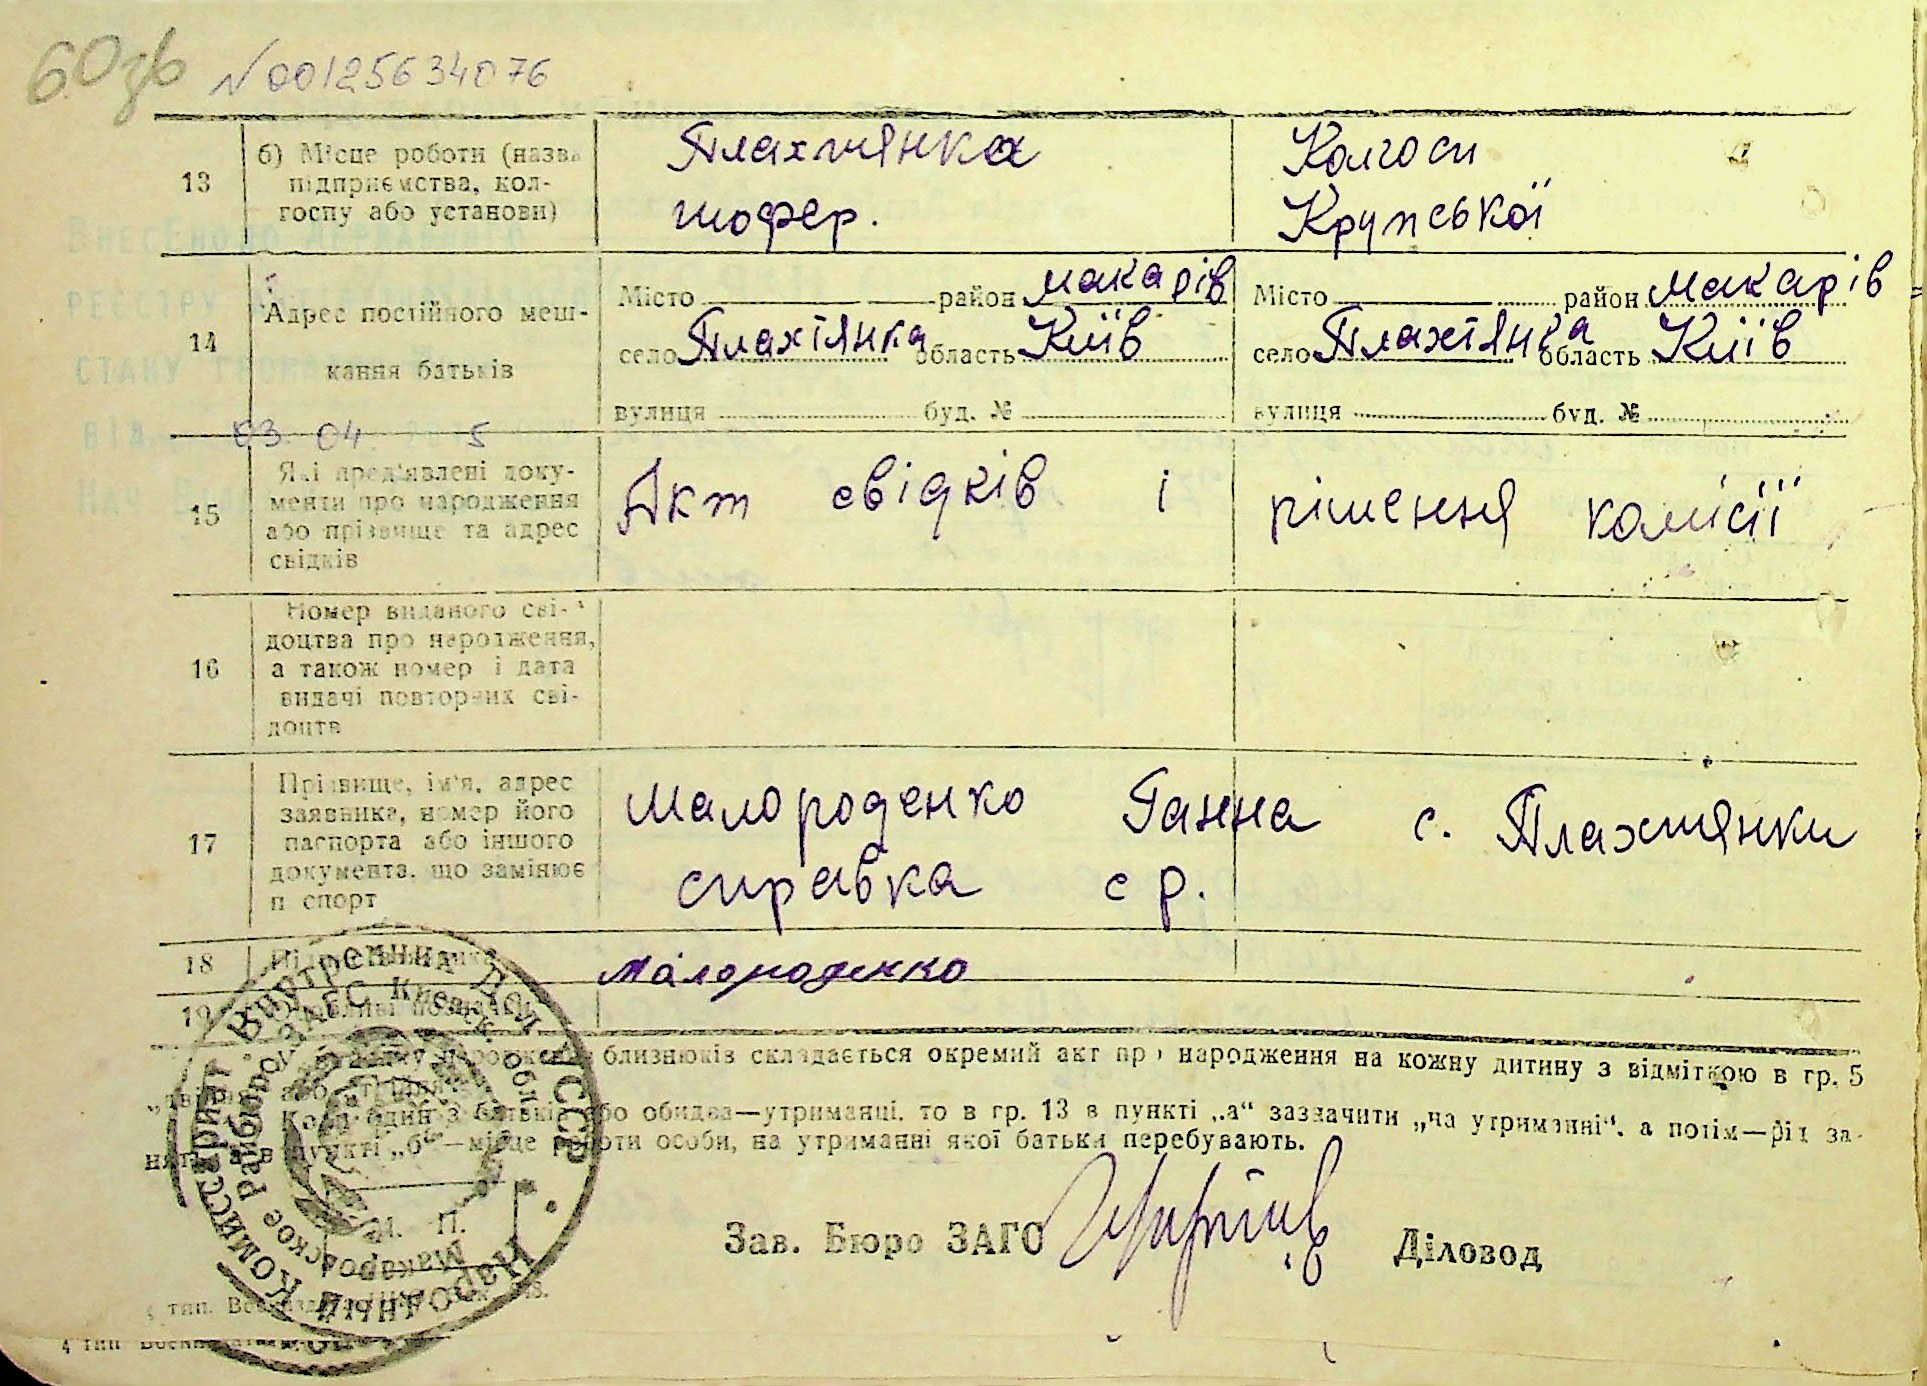 60зв N 00125634076
13
б) Місце роботи (назва
підприємства, кол-
госпу або установи)
Плахтянка
шофер.
Колгосп
Крупської
Внесено до Державного
реєстру
стану громадян
від 03 04 5
Нач.
14
Адрес постійного меш-
кання батьків
Місто район Макарів
село Плахтянка область Київ
вулиця буд. №
Місто район Макарів
село Плахтянка область Київ
вулиця буд. №
15
Які пред'явлені доку-
менти про народження
або прізвище та адрес
свідків
Акт свідків і рішення комісії
16
Номер виданого сві-
доцтва про народження,
а також номер і дата
видачі повторних сві-
доцтв
17
Прізвище, ім'я, адрес
заявника, номер його
паспорта або іншого
документа, що замінює
п спорт
Малороденко Ганна с. Плахтянки
справка с р.
18
Малороденко
19
близнюків складається окремий акт про народження на кожну дитину з відміткою в гр. 5
Коли один з батьків або обидва—утриманці, то в гр. 13 в пункті „а“ зазначити „на утриманні“, а потім—рід за-
няття, а в пункті „б“—місце роботи особи, на утриманні якої батьки перебувають.
Народный Комиссариат Внутренних Дел УССР
Макаровское Райбюро ЗАГС Киевск. обл.
М. П.
Зав. Бюро ЗАГС
Діловод
4 тип.
4 тип